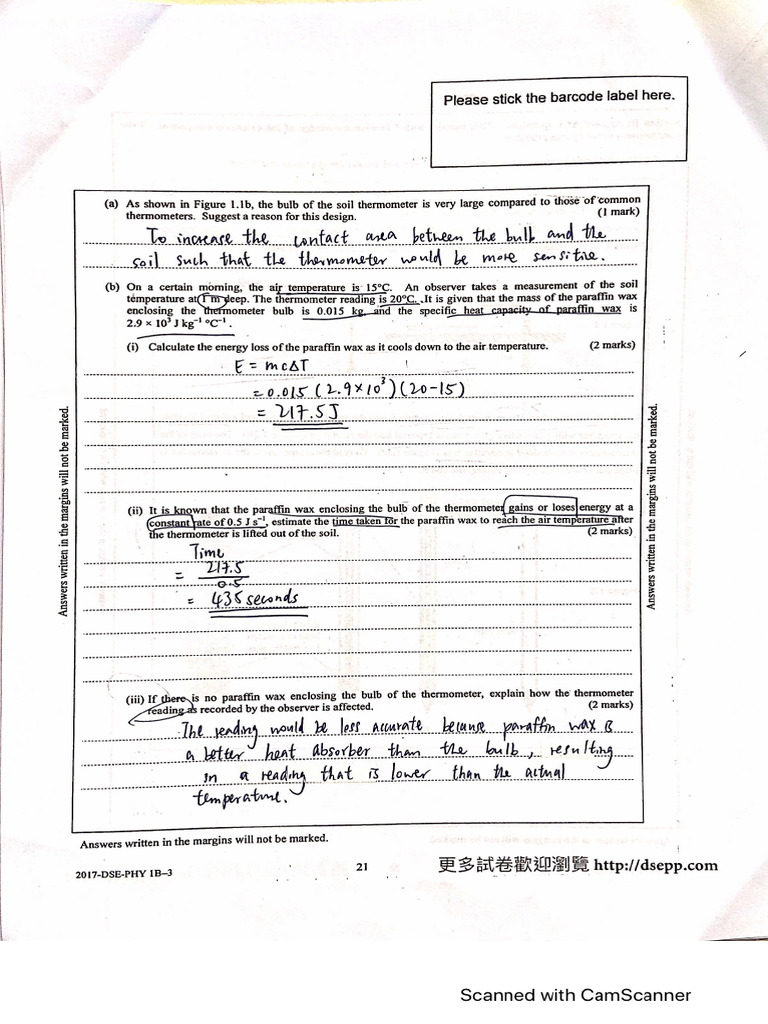 Please stick the barcode label here.
(a) As shown in Figure 1.1b, the bulb of the soil thermometer is very large compared to those of common
thermometers. Suggest a reason for this design. (1 mark)
To increase the contact area between the bulb and the
soil such that the thermometer would be more sensitive.
(b) On a certain morning, the air temperature is 15°C. An observer takes a measurement of the soil
temperature at 1 m deep. The thermometer reading is 20°C. It is given that the mass of the paraffin wax
enclosing the thermometer bulb is 0.015 kg, and the specific heat capacity of paraffin wax is
2.9 × 10³ J kg⁻¹ °C⁻¹.
(i) Calculate the energy loss of the paraffin wax as it cools down to the air temperature. (2 marks)
E = mcΔT
= 0.015 (2.9×10³)(20-15)
= 217.5J
(ii) It is known that the paraffin wax enclosing the bulb of the thermometer gains or loses energy at a
constant rate of 0.5 J s⁻¹, estimate the time taken for the paraffin wax to reach the air temperature after
the thermometer is lifted out of the soil. (2 marks)
Time
= 217.5
0.5
= 435 seconds
(iii) If there is no paraffin wax enclosing the bulb of the thermometer, explain how the thermometer
reading as recorded by the observer is affected. (2 marks)
The reading would be less accurate because paraffin wax is
a better heat absorber than the bulb, resulting
in a reading that is lower than the actual
temperature.
Answers written in the margins will not be marked.
Answers written in the margins will not be marked.
Answers written in the margins will not be marked.
2017-DSE-PHY 1B–3
21
更多試卷歡迎瀏覽 http://dsepp.com
Scanned with CamScanner